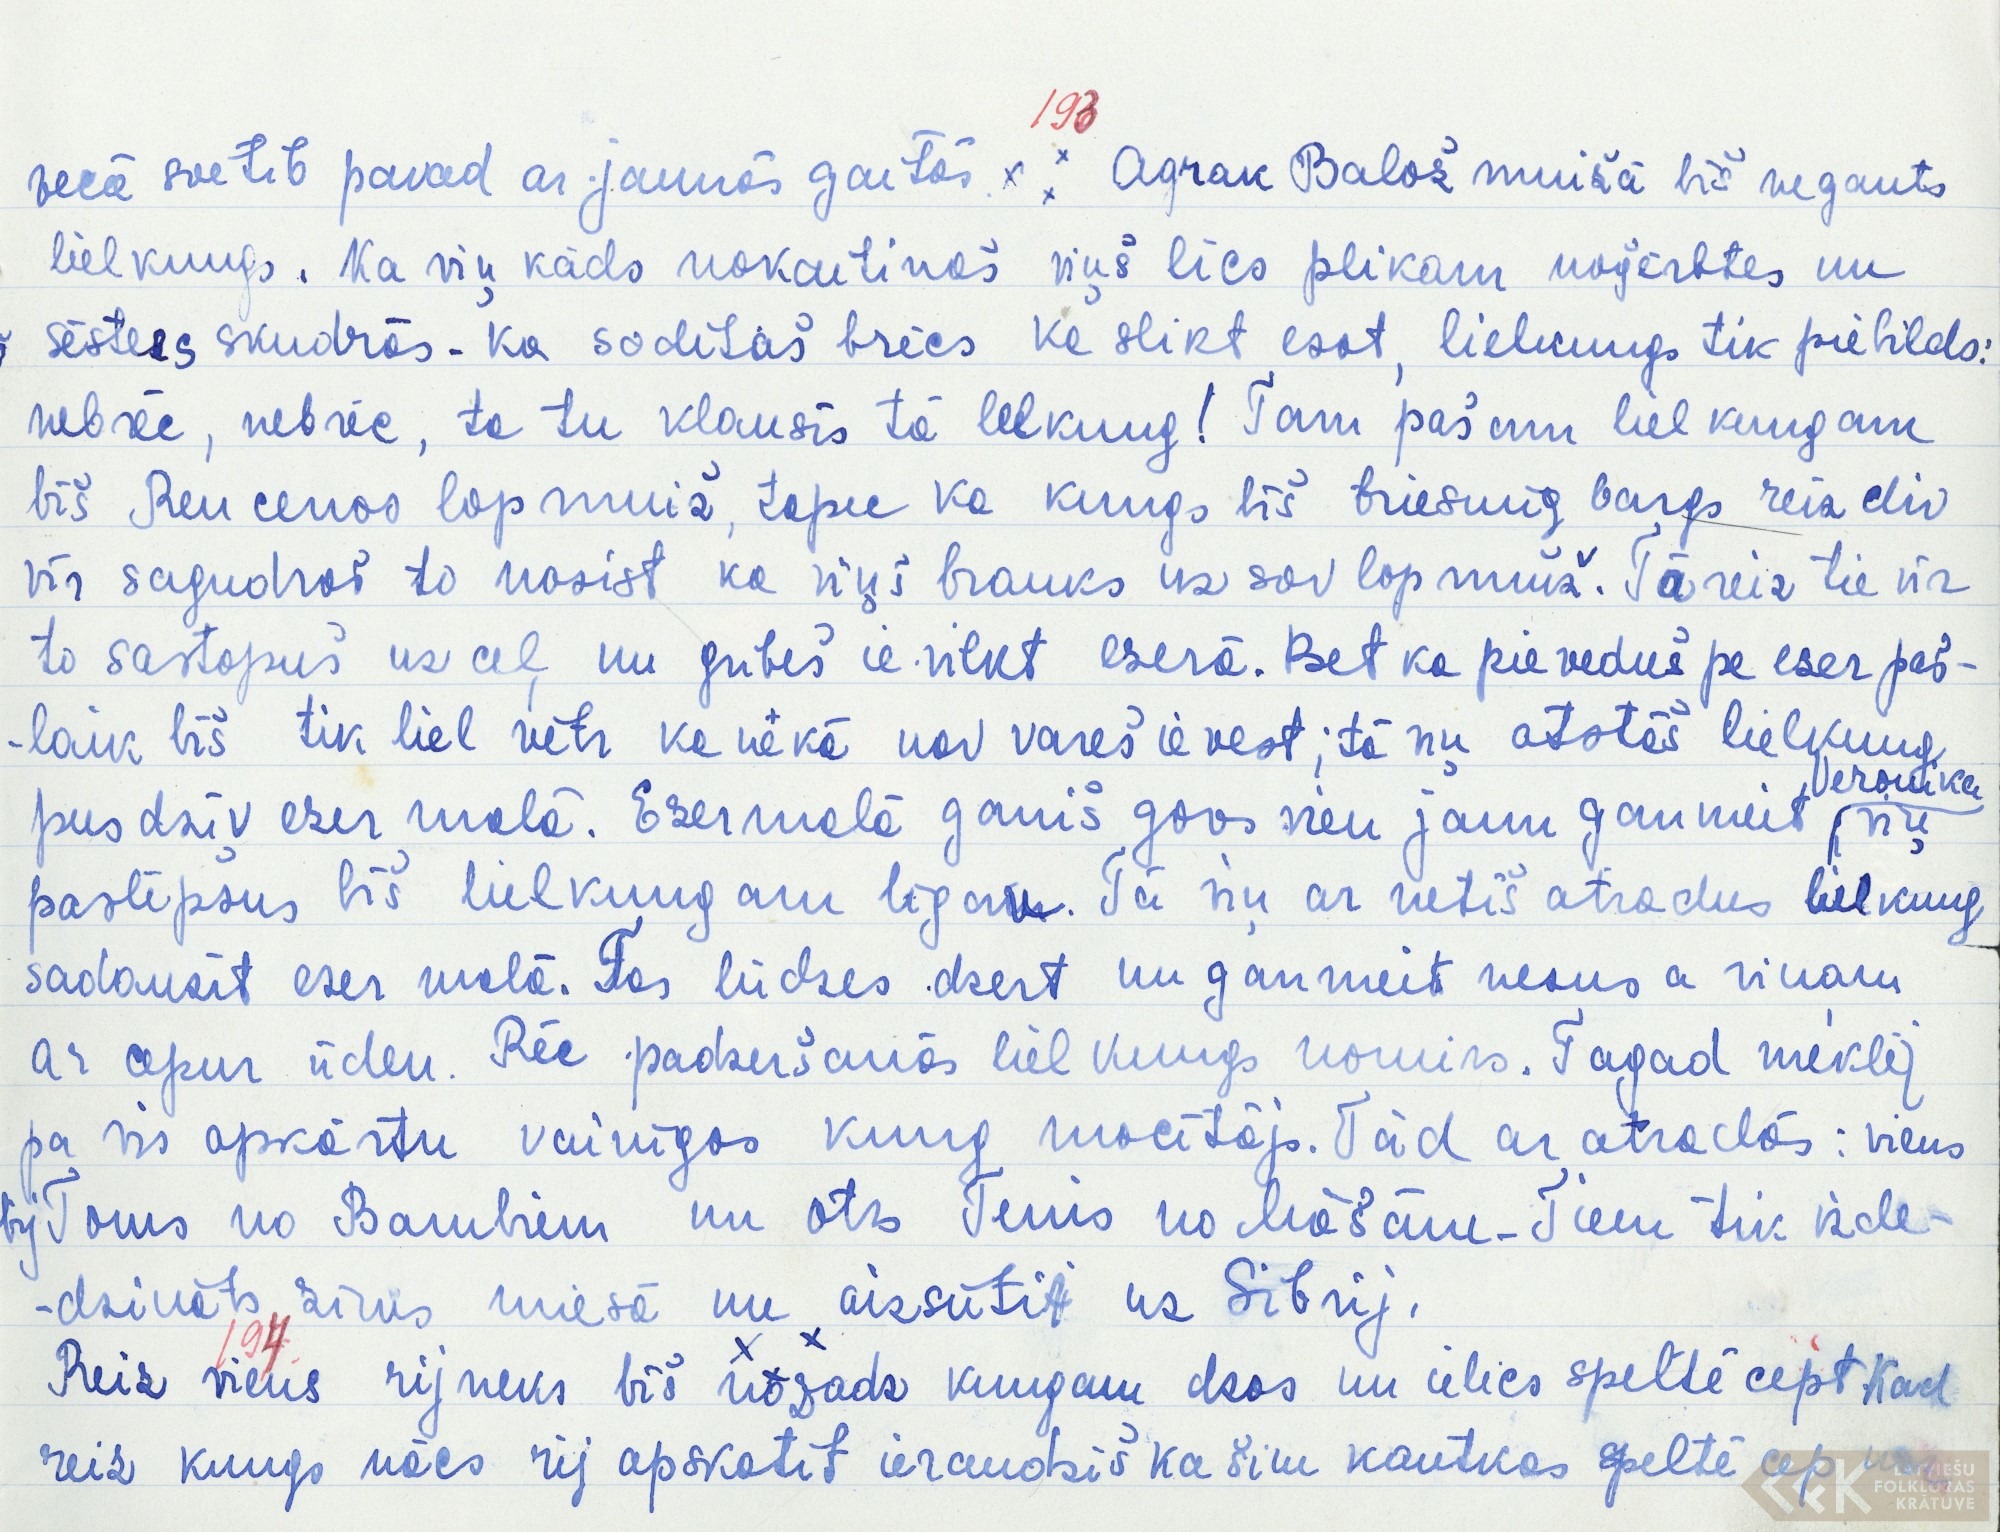 193
vecā svētīb pavad ar jaunās gaitās. x x x Agrak Balož muižā bīš negants
lielkungs. Ka viņ kāds nokaitinaš viņš lics plikam noģērbtes un
sēstees skudrās - ka sodītaš brēcs ka slikt esat, lielkungs tik piebilds:
nebrēc, nebrēc, ta tu klausīs tā lelkung! Tam pašam lielkungam
bīš Rencenos lopmuiž, tapec ka kungs bīš briesmig bargs reiz div
vīr sagudroš to nosist ka viņš brauks uz sav lopmuiž. Tā reiz tie vīr
to sastopuš uz ceļ, un gribeš ievilkt ezerā. Bet ka pieveduš pe ezer paš-
-laik bīš tik liel vētr ka nekā nav vareš ievest; tā viņ atstāš lielkung
pusdzīv ezer malā. Ezermalā ganiš govs vien jaun ganmeit Veronika viņ
paslēpsus bīš lielkungam ligam. Tā viņ ar netīš atradus lielkung
sadauzīt ezer malā. Tas lūdzes dzert un ganmeit nesus a vinam
ar cepur ūden. Pēc padzeršanās lielkungs nomirs. Tagad meklēj
pa vis apkārtn vainīgos kung mocītājs. Tād ar atradās: viens
bij Toms no Bambiem un otrs Tenis no Māšām - Tiem tik izde-
-dzināts zīms miesā un aizsūtīt uz Sibrij.
194
Reiz viens rijneks bīš nozadz kungam dzos un ielics speltē cept. Kad
reiz kungs nācs rij apskatīt ieraudzīš ka šim kautkas speltē cep
LATVIEŠU
FOLKLORAS
KRĀTUVE